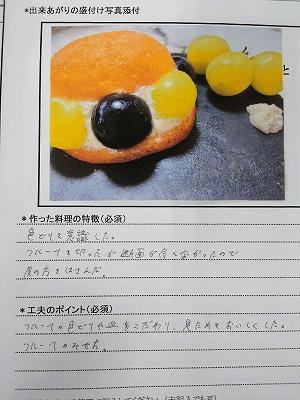 *出来あがりの盛付け写真添付
と
*作った料理の特徴(必須)
色どりを意識した。
フルーツを切ったが断面が良くなかったので
皮の方をはさんだ。
*工夫のポイント(必須)
フルーツの色どりや皿をこだわり、見ためをおいしくした。
フルーツのみせ方。
(未記入でも可)